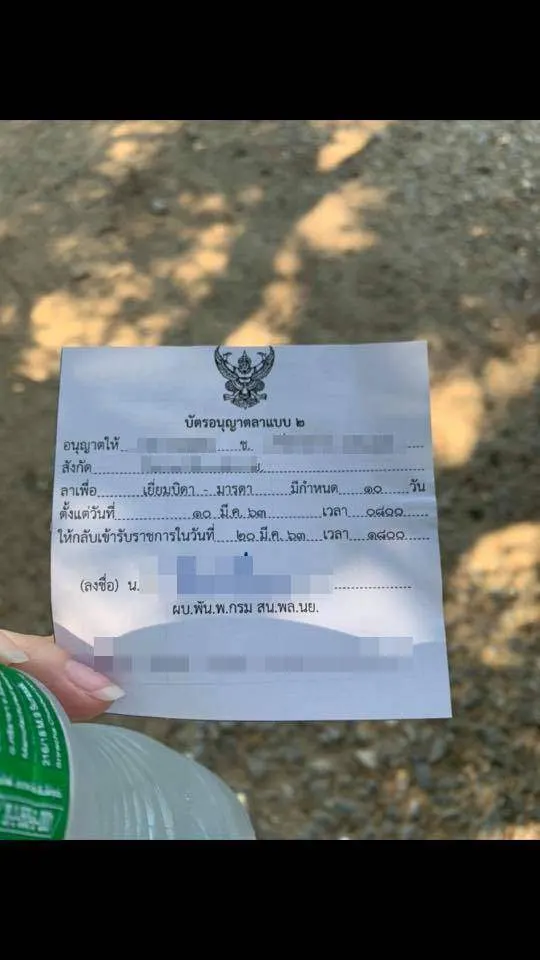 บัตรอนุญาตลาแบบ ๒
อนุญาตให้ ช.
สังกัด
ลาเพื่อ เยี่ยมบิดา - มารดา มีกำหนด ๑๐ วัน
ตั้งแต่วันที่ ๑๐ มี.ค. ๖๓ เวลา ๐๘๐๐
ให้กลับเข้ารับราชการในวันที่ ๒๐ มี.ค. ๖๓ เวลา ๑๘๐๐
(ลงชื่อ) น.
ผบ.พัน.พ.กรม สน.พล.นย.